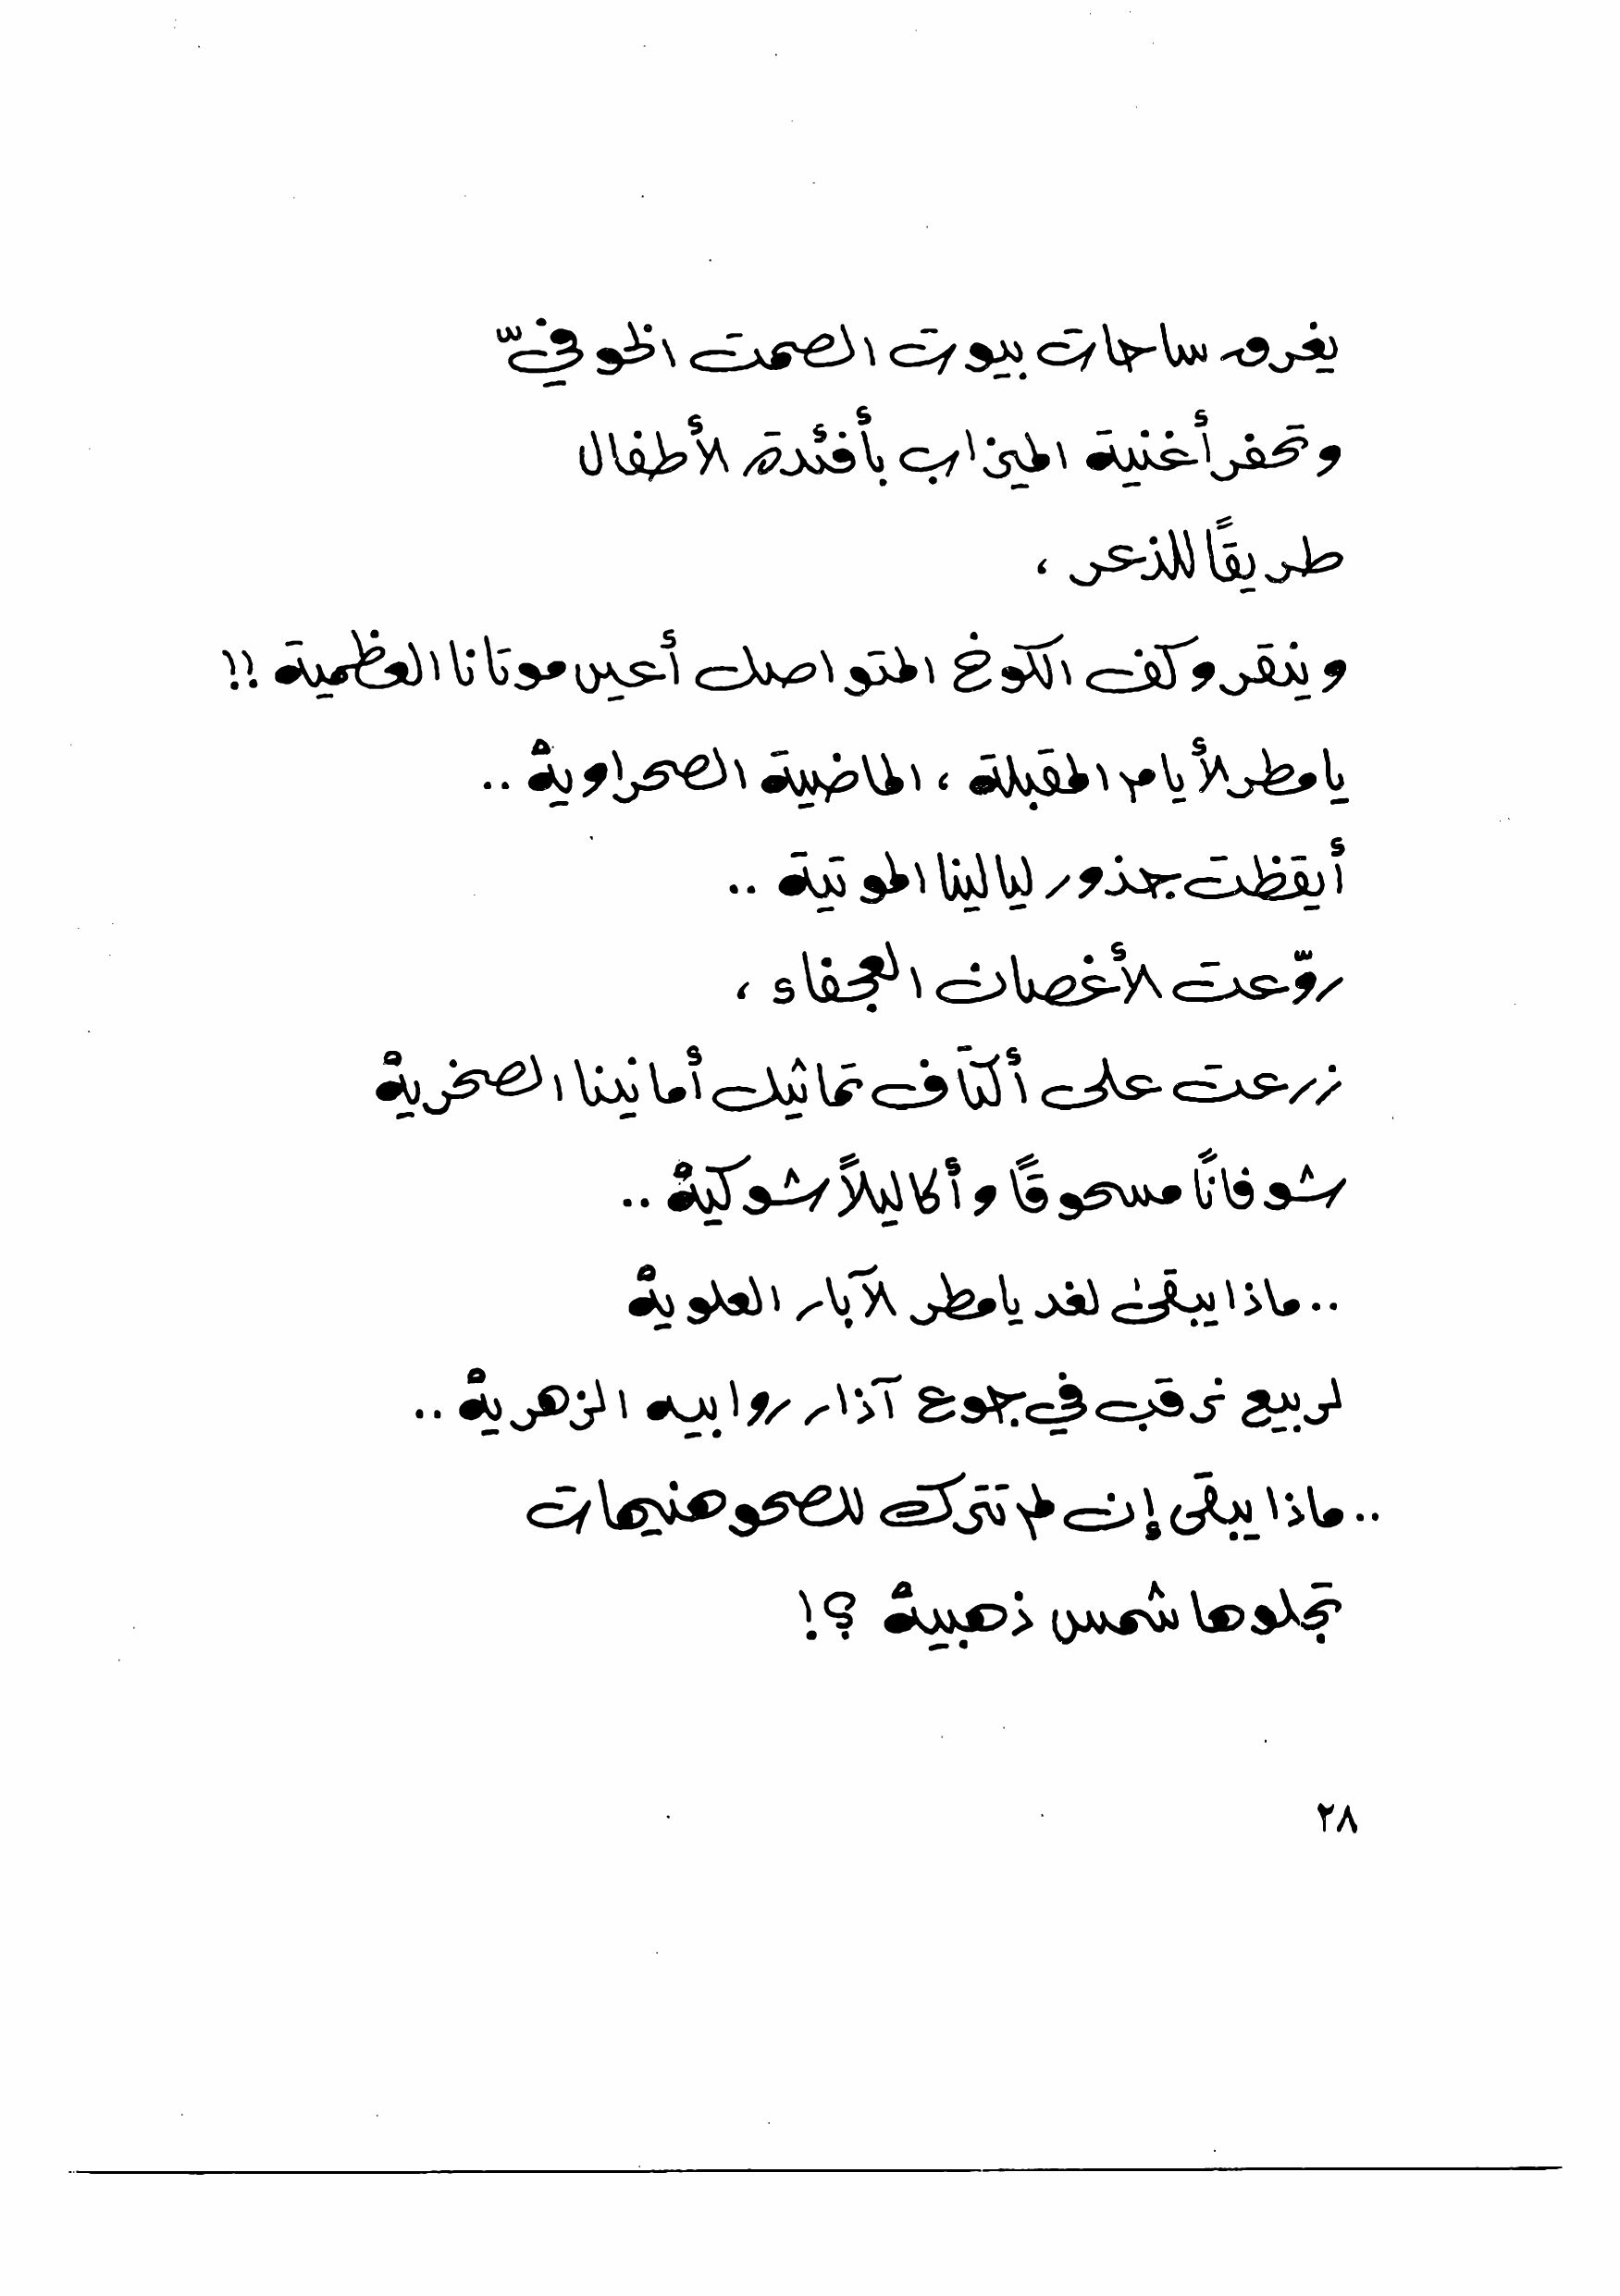 يغرق ساحات بيوت الصمت الخوفيّ
وتحفر أغنية الميزاب بأفئدة الأطفال
طريقًا للذعر ،
وينقر وكف الكوخ المتواصل أعين موتانا العظمية !!
يا مطر الأيام المقبلة ، الماضية الصحراويةْ ..
أيقظت جذور ليالينا الموتية ..
روّعت الأغصان العجفاء ،
زرعت على أكتاف تماثيل أمانينا الصخريةْ
شوفانًا مسحوقًا وأكاليلاً شوكيةْ ..
.. ماذا يبقى لغد يا مطر الآبار العلويةْ
لربيع نرقب في جوع آذار روابيه الزهريةْ ..
.. ماذا يبقى إن لم تترك للصحو هنيهات
تجلوها شمس ذهبيةْ ؟!
٢٨